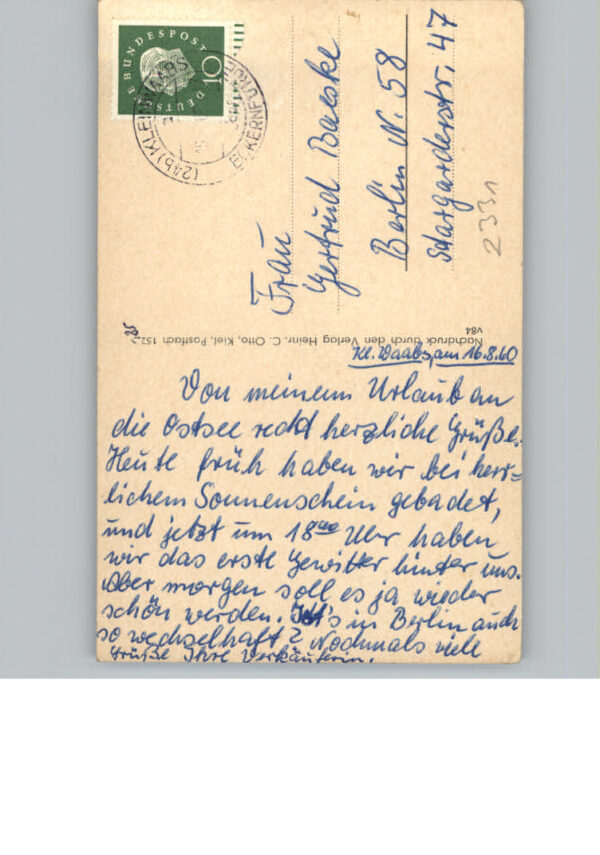 DEUTSCHE BUNDESPOST
10
(24b) KLEINWAABS
ECKERNFÖRDE
Frau
Gertrud Baeske
Berlin N. 58
Stargarderstr. 47
2331
Nachdruck durch den Verlag Heinr. C. Otto, Kiel, Postfach 152
v84
Kl. Waabs, am 16.8.60
Von meinem Urlaub an
die Ostsee recht herzliche Grüße.
Heute früh haben wir bei herr=
lichem Sonnenschein gebadet,
und jetzt um 18 Uhr haben
wir das erste Gewitter hinter uns.
Aber morgen soll es ja wieder
schön werden. Ist's in Berlin auch
so wechselhaft? Nochmals viele
Grüße Ihre Verkäuferin.